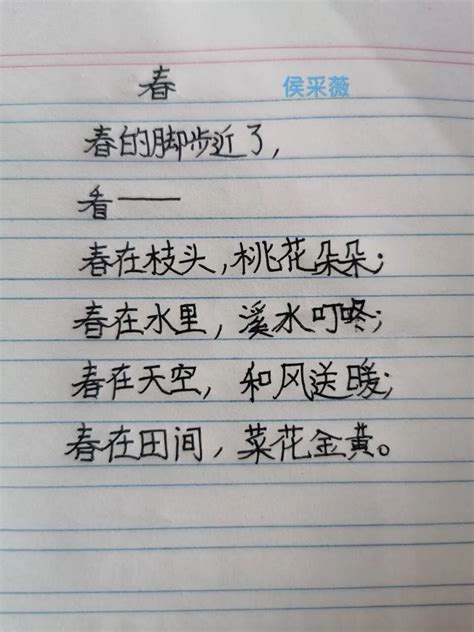 春 侯采薇
春的脚步近了，
看——
春在枝头，桃花朵朵；
春在水里，溪水叮咚；
春在天空，和风送暖；
春在田间，菜花金黄。